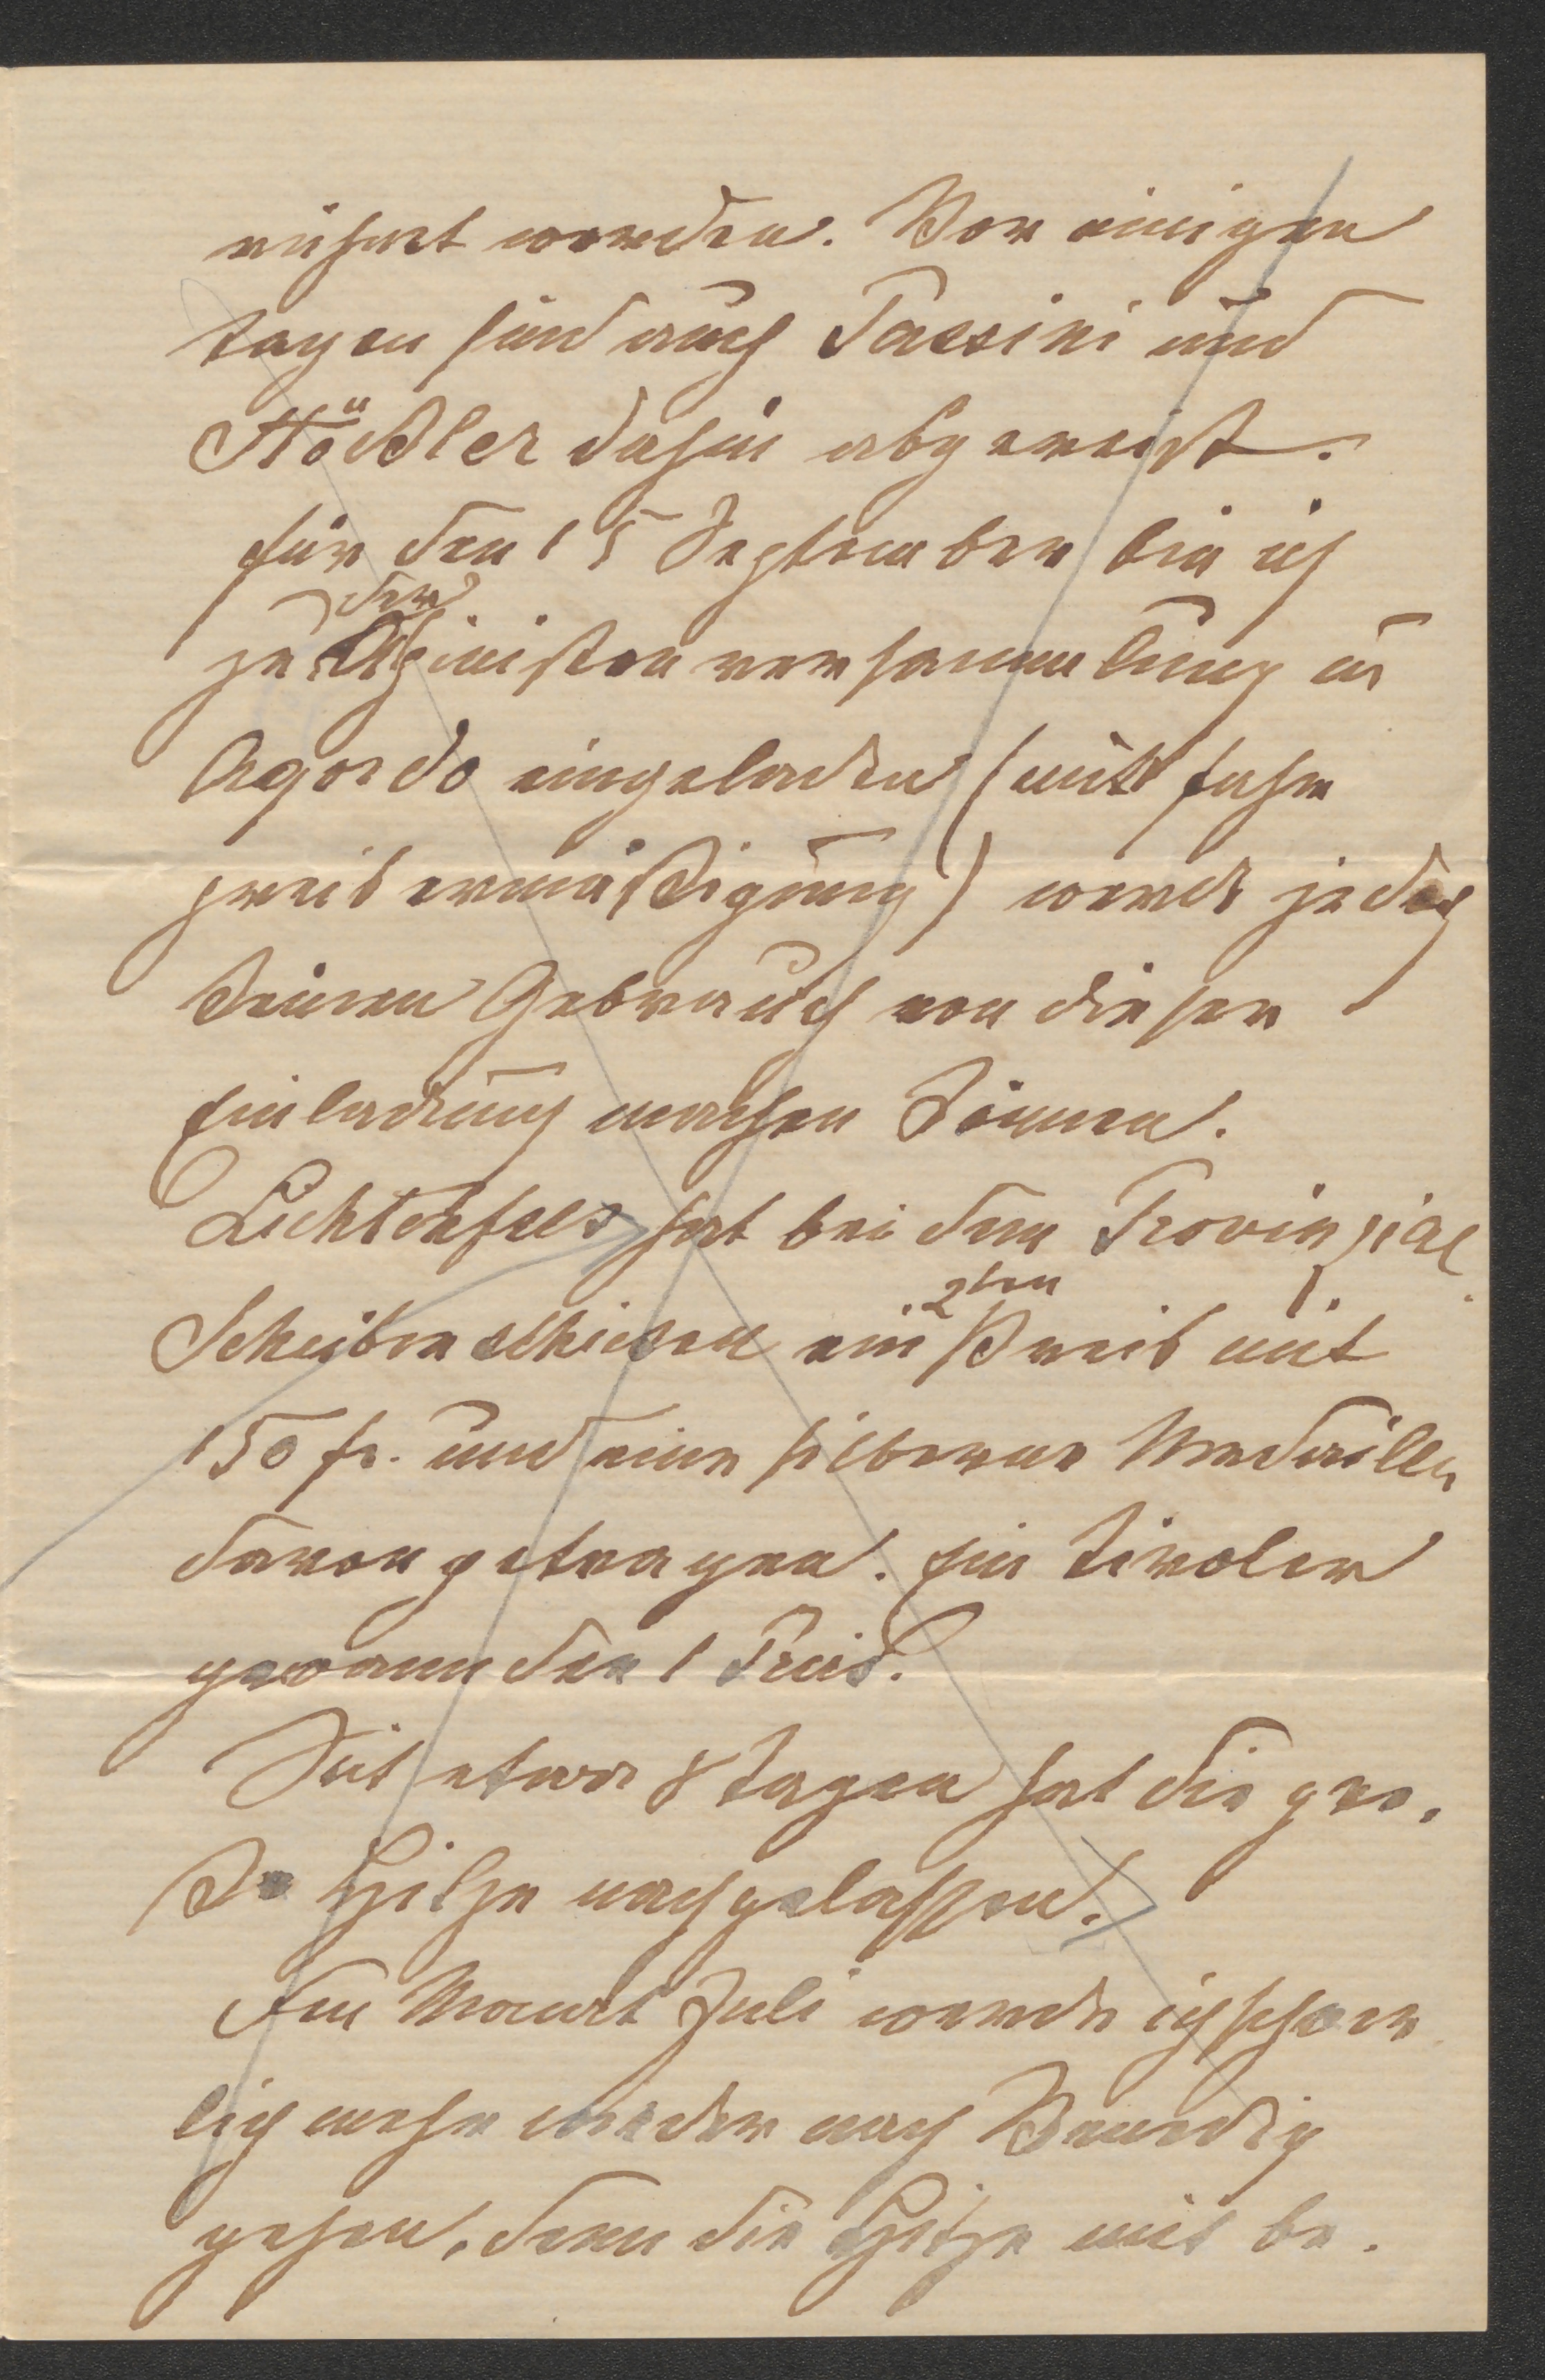 rechnet worden. Vor einigen
Tagen sind auch Passini und
Stückler dahin abgereist.
Für den 15 September bin ich
zu der Alpinistenversammlung in
Agordo eingeladen (mit Fahr
preisermäßigung) werde jedoch
keinen Gebrauch von dieser
Einladung machen können.
Lichtenfels hat bei dem Provinzial
Scheibenschießen ein 2ten Preis mit
150 fr. und eine silberne Medaille
davon getragen. Ein Tiroler
gewann den 1 Preis.
Seit etwa 8 Tagen hat die gro-
ße Hitze nachgelassen.
Im Monat Juli werde ich schwer
lich mehr wieder nach Venedig
gehen, denn die Hitze mit be-